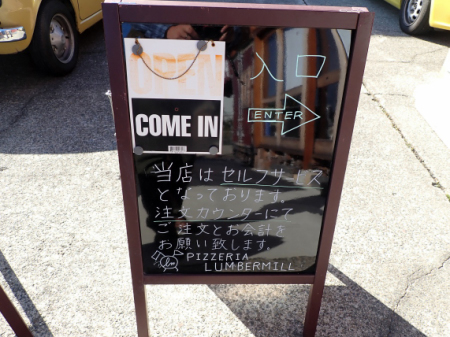 OPEN
COME IN
入口
ENTER
当店はセルフサービス
となっております。
注文カウンターにて
ご注文とお会計を
お願い致します。
PIZZERIA
LUMBERMILL